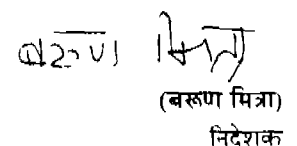 बरूण मित्रा
(बरूण मित्रा)
निदेशक